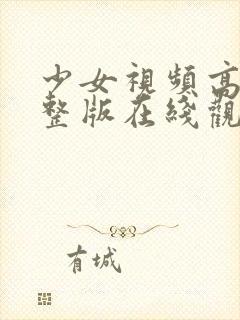 少女視頻高
整版在綫觀
有城